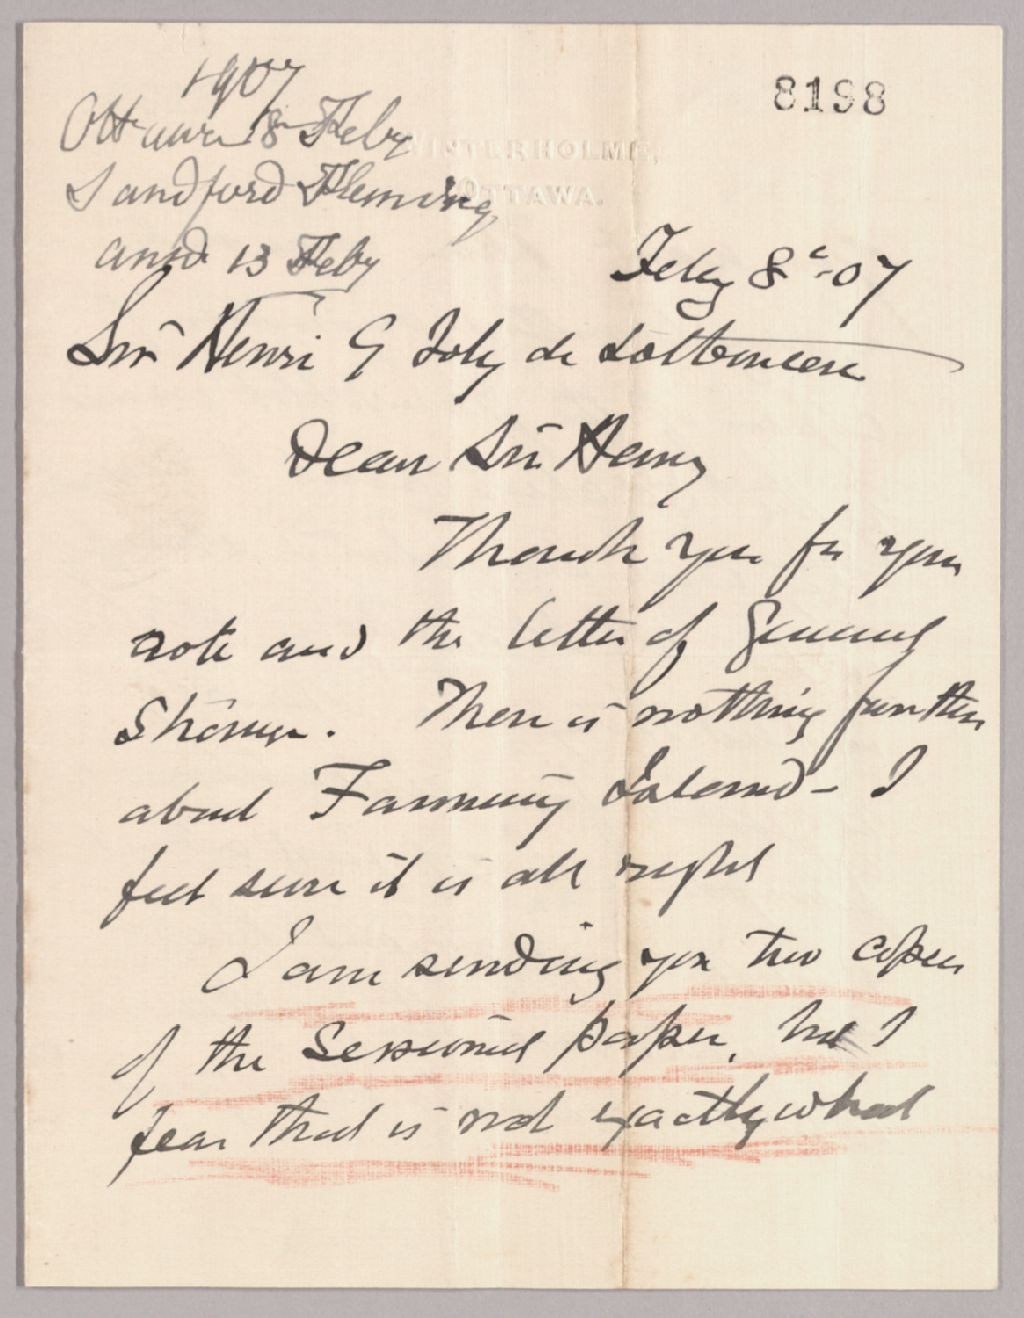 1907
8198
Ottawa 8 Feby
Sandford Fleming
ansd 13 Feby
WINTERHOLME,
OTTAWA.
Feby 8th 07
Sir Henri G Joly de Lotbiniere
Dear Sir Henry
Thank you for your
note and the letter of General
There is nothing further
about Fanning Island - I
feel sure it is all right
I am sending you two copies
of the Sessional paper, but I
fear that is not exactly what